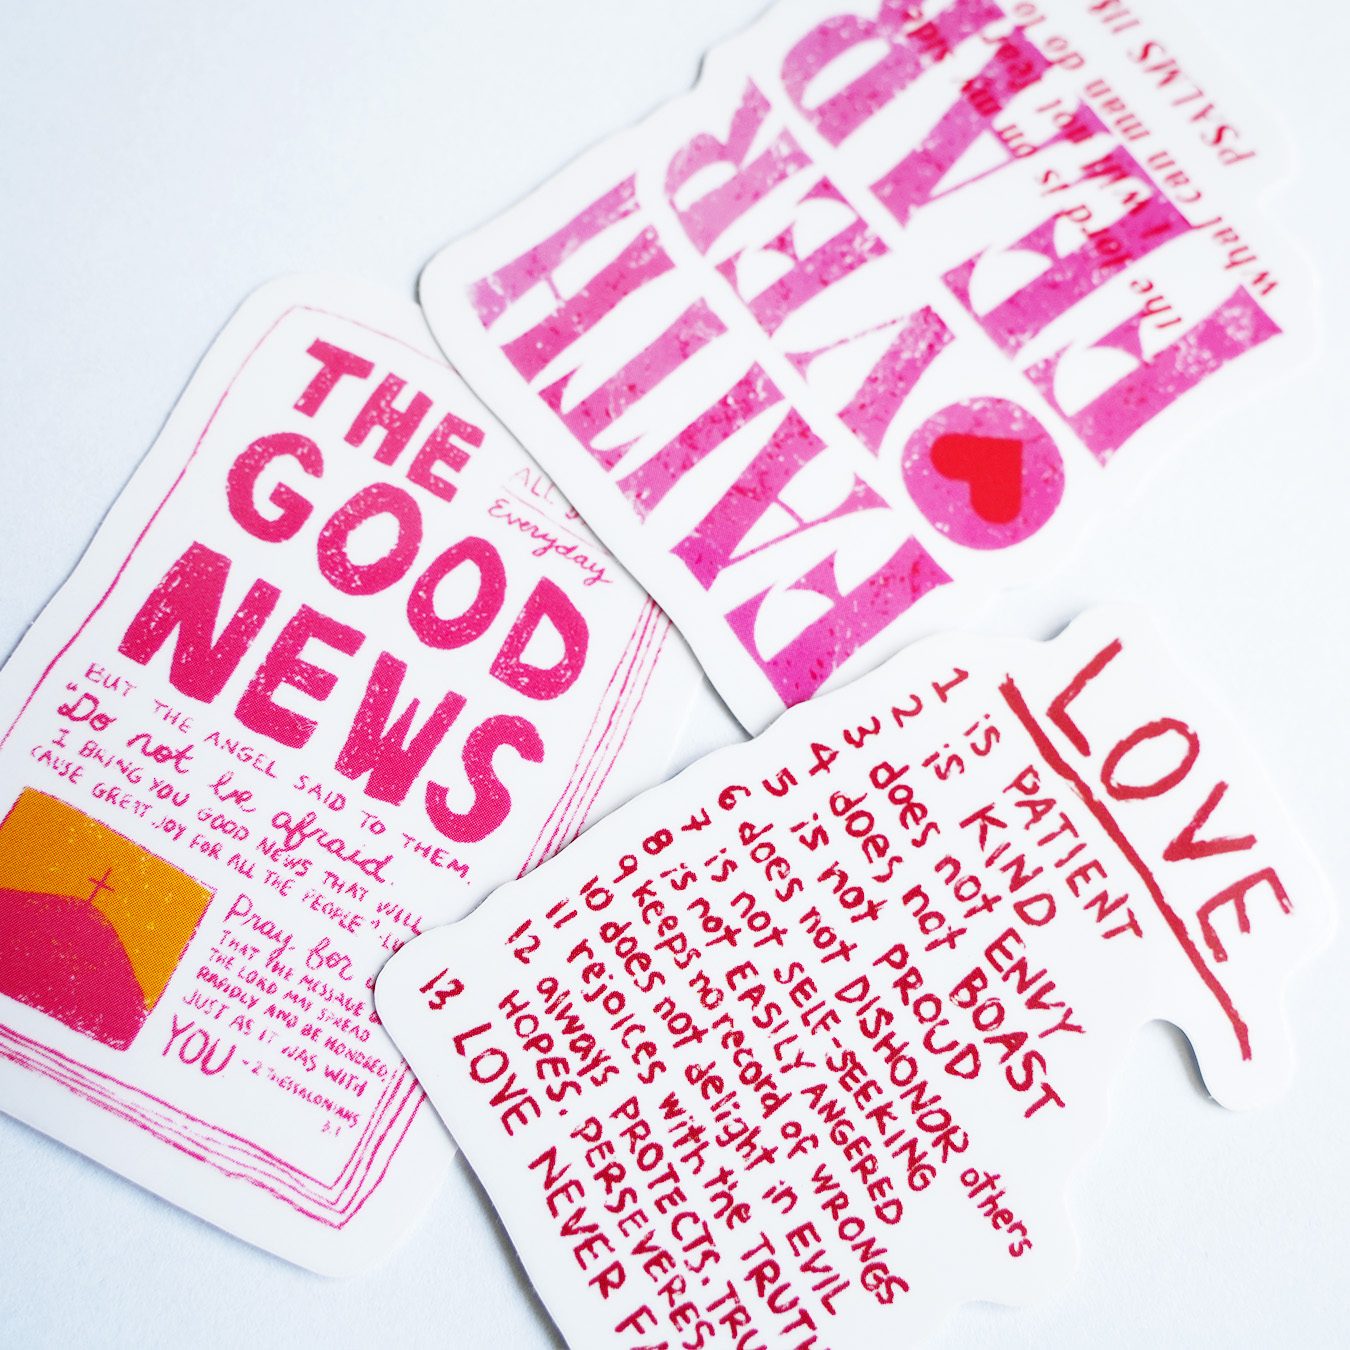 THE
GOOD
NEWS
ALL
Everyday
BUT THE ANGEL SAID TO THEM.
"Do not be afraid.
I BRING YOU GOOD NEWS THAT WILL
CAUSE GREAT JOY FOR ALL THE PEOPLE"
Pray for
THAT THE MESSAGE
THE LORD MAY SPREAD
RAPIDLY AND BE HONORED,
JUST AS IT WAS WITH
YOU - 2 THESSALONIANS
3:1
FAITH
OVER
FEAR
the lord is on my side
I will not fear
what can man do to
PSALMS 118
LOVE
1 is PATIENT
2 is KIND
3 does not ENVY
4 does not BOAST
5 is not PROUD
6 does not DISHONOR others
7 is not SELF-SEEKING
8 is not EASILY ANGERED
9 keeps no record of WRONGS
10 does not delight in EVIL
11 rejoices with the TRUTH
12 always PROTECTS. TRU
HOPES. PERSEVERES
13 LOVE NEVER FA